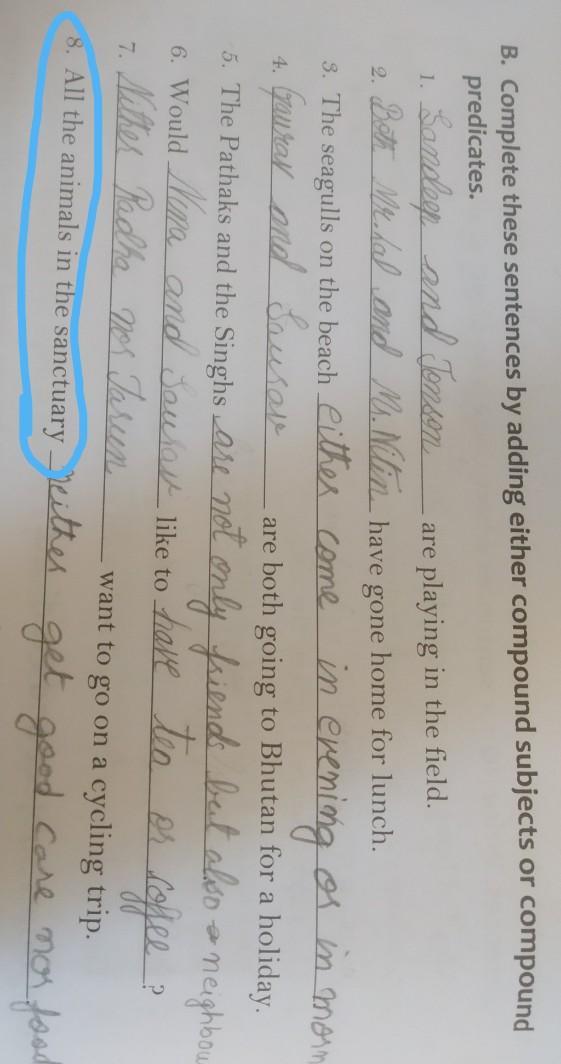 B. Complete these sentences by adding either compound subjects or compound
predicates.
1. Sandeep and Jonson are playing in the field.
2. Both Mr. Lal and Mr. Nitin have gone home for lunch.
3. The seagulls on the beach either come in evening or in morn
4. Gaurav and Saurav are both going to Bhutan for a holiday.
5. The Pathaks and the Singhs are not only friends but also neighbou
6. Would Nina and Saurav like to have tea or coffee ?
7. Nither Radha nor Tarun want to go on a cycling trip.
8. All the animals in the sanctuary neither get good care nor food